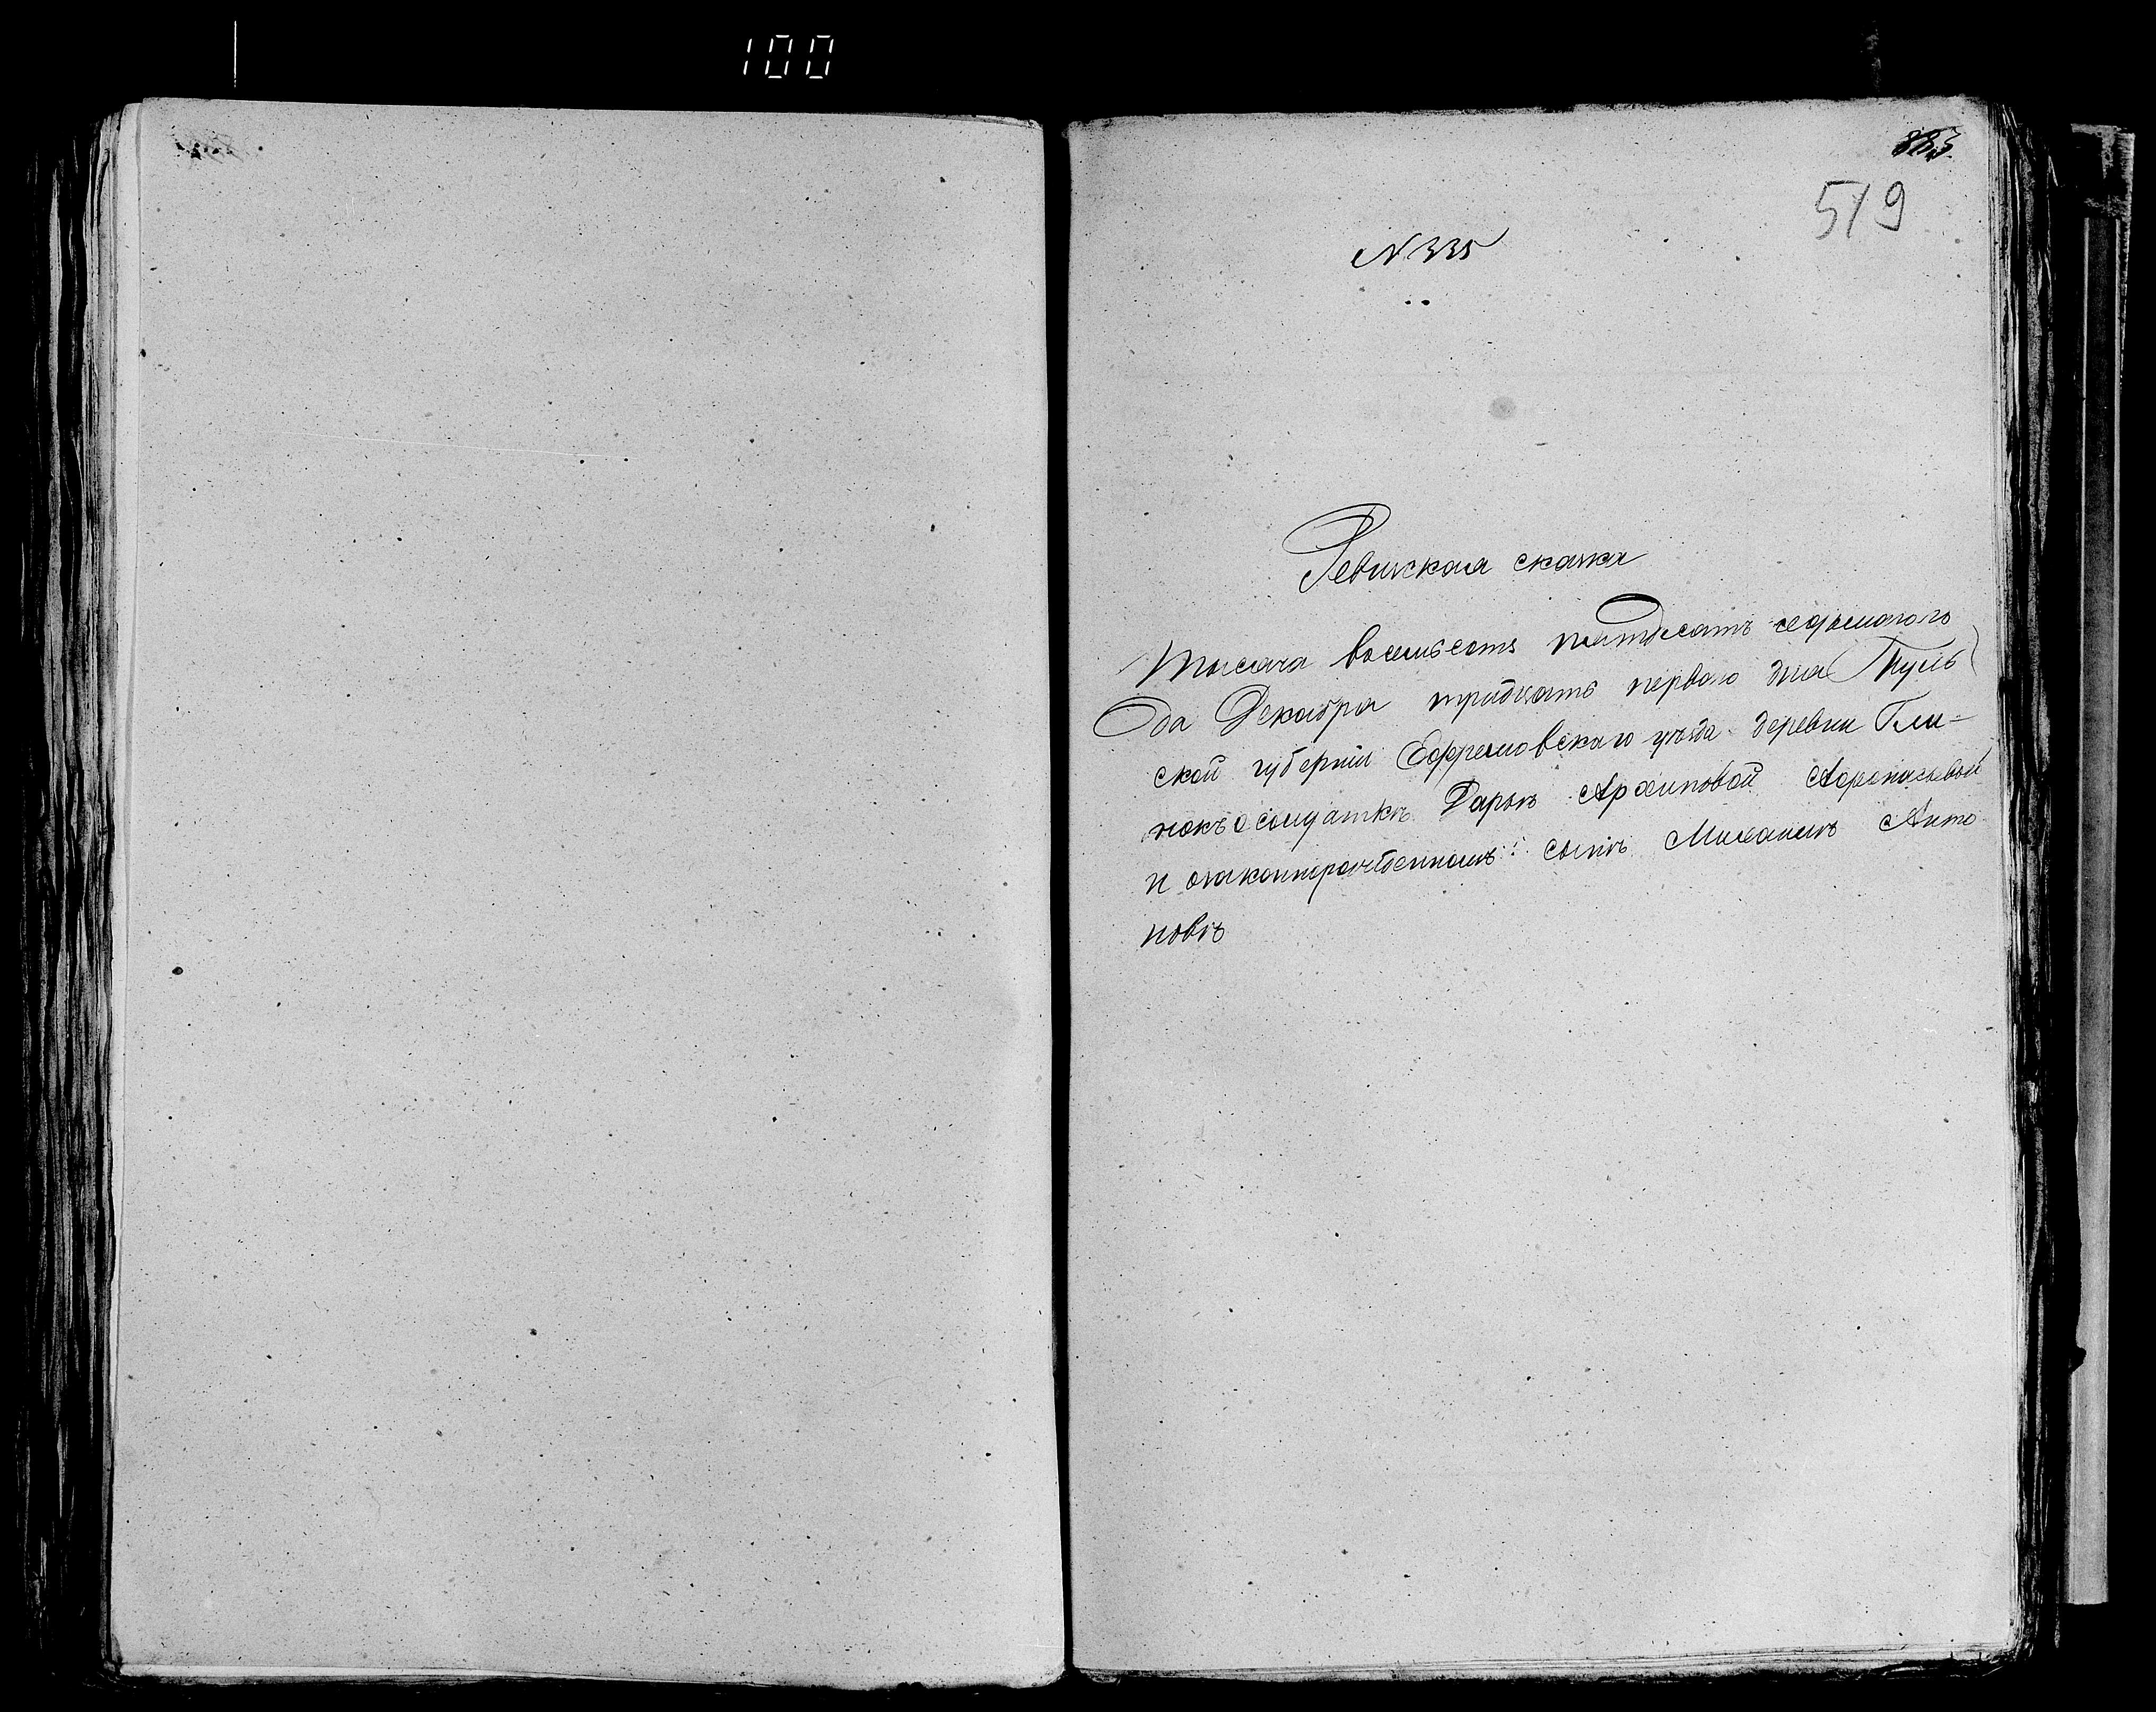 100
883
519
N 335
Ревизская сказка
Тысяча восемьсотъ пятдесятъ седьмого го
да Декабря тридцать первого дня Туль
ской губерніи Ефремовскаго уѣзда деревни Гли=
нокъ о солдаткѣ Дарьѣ Архиповой Афонасьевой
и сынѣ Михаилѣ Анто
новѣ